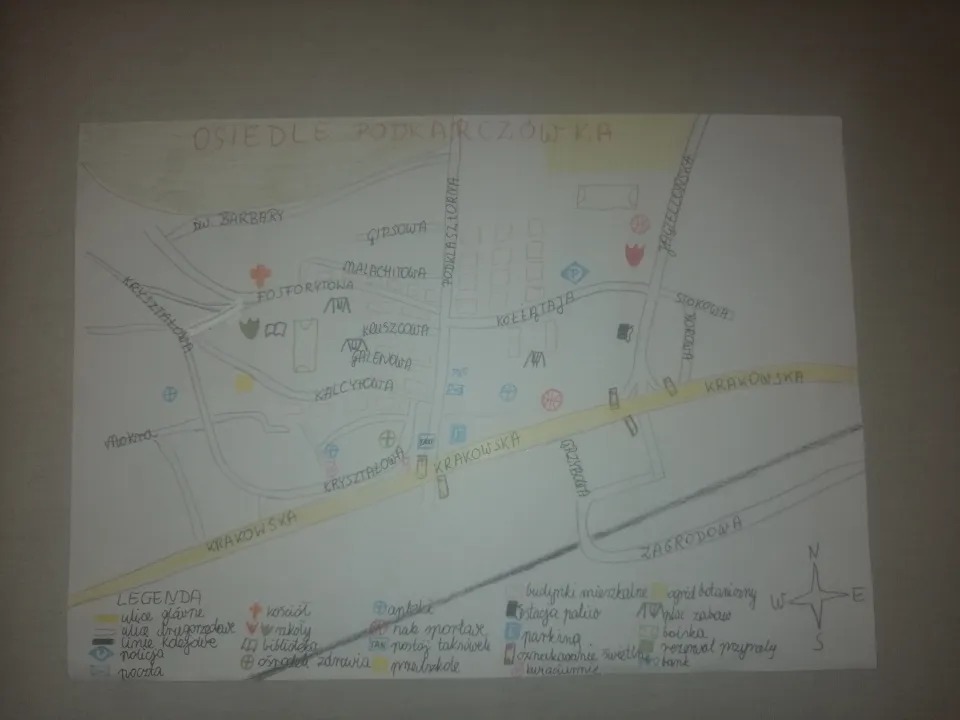 OSIEDLE PODKARCZÓWKA
ŚW. BARBARY
GIPSOWA
PODKLASZTORNA
JAGIELLOŃSKA
MALACHITOWA
FOSFORYTOWA
KRYSZTAŁOWA
KRUSZCOWA
KOŁŁĄTAJA
STOKOWA
GALENOWA
KALCYTOWA
KRAKOWSKA
Mokra
KRYSZTAŁOWA
TAXI
P
KRAKOWSKA
GRZYBOWA
KRAKOWSKA
ZAGRODOWA
N
W E
S
LEGENDA
ulice główne
ulice drugorzędne
linie kolejowe
policja
poczta
kościół
szkoły
biblioteka
ośrodek zdrowia
apteki
hale sportowe
TAXI postój taksówek
przedszkole
budynki mieszkalne
stacja paliw
P parking
ogród botaniczny
plac zabaw
boiska
rezerwat przyrody
bank